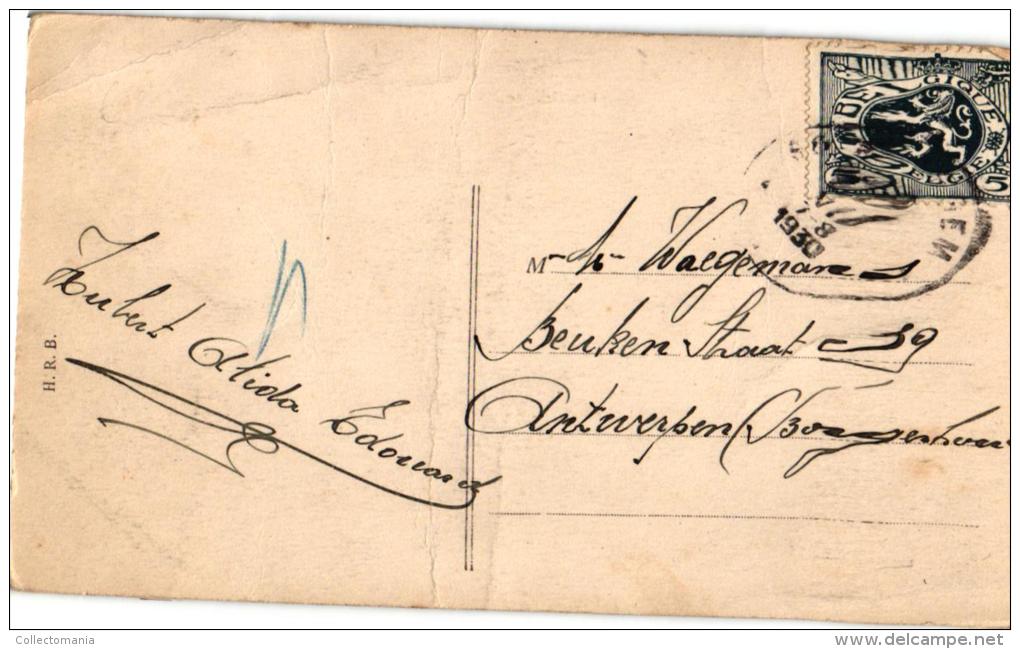 BELGIQUE
BELGIE
5
GEM
7-8
1930
Hubert Alida Edouard
H. R. B.
M
Waegemans
Beuken Straat 59
Antwerpen (Borgerhou
Collectomania
www.delcampe.net